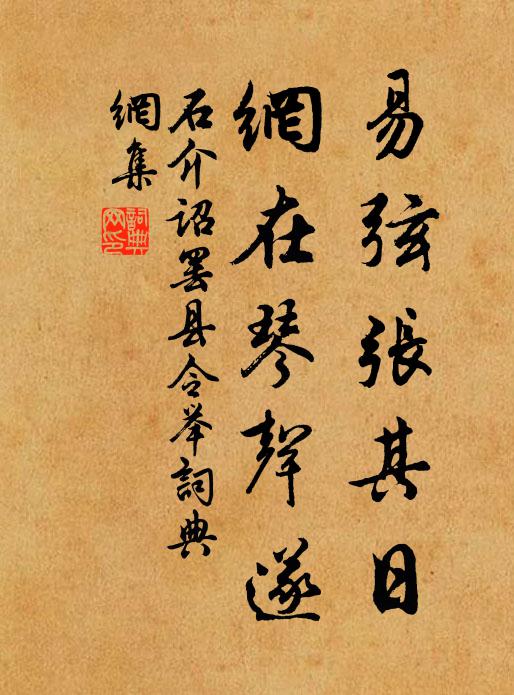 易弦張其目
網在琴聲遂
石介詔罢县令举詞典
網集
詞典網印